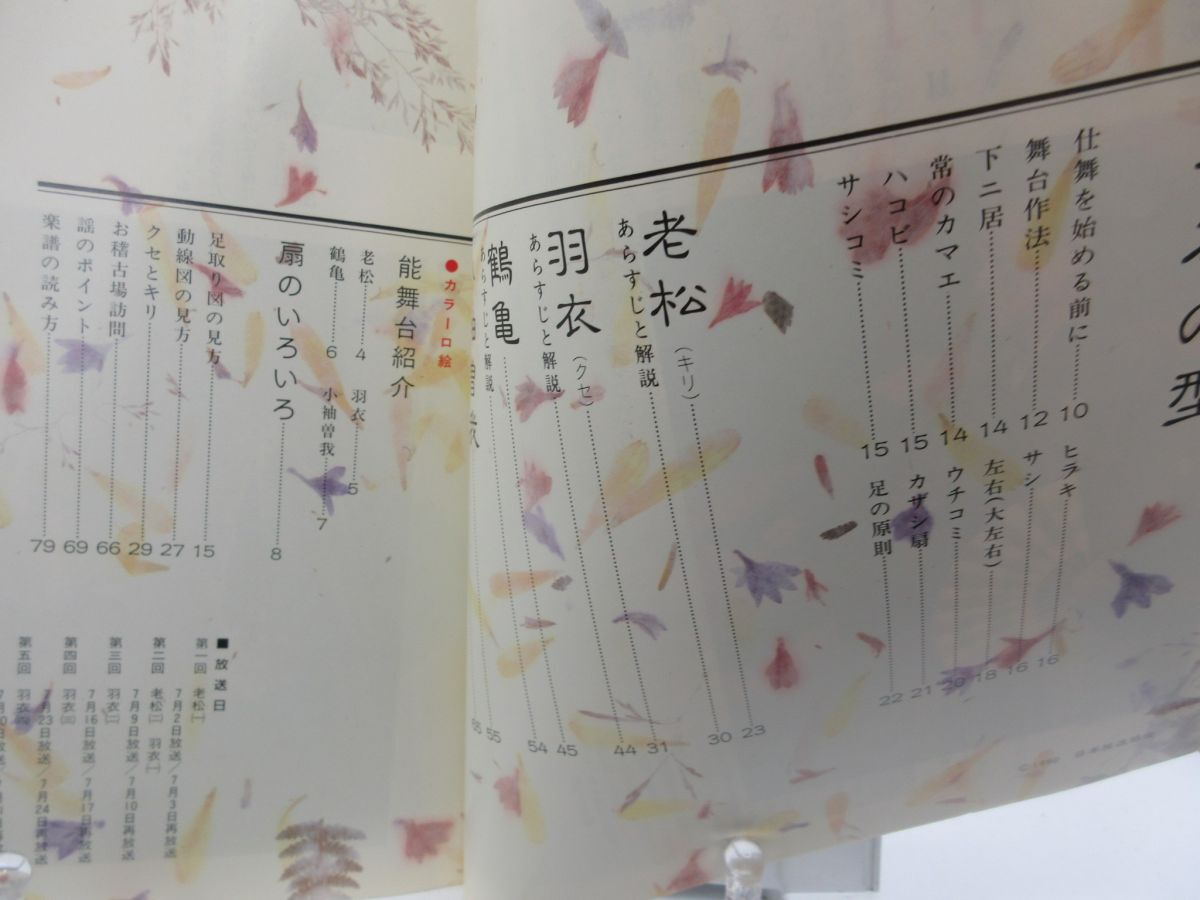 の型
仕舞を始める前に 10
舞台作法 12
下ニ居 14
常のカマエ 14
ハコビ 15
サシコミ 15
ヒラキ 16
サシ 16
左右(大左右) 18
ウチコミ 20
カザシ扇 21
足の原則 22
老松(キリ) 23
あらすじと解説 30
羽衣(クセ) 31
あらすじと解説 44
鶴亀 45
あらすじと解説 54
55
●カラー口絵
能舞台紹介
老松 4
羽衣 5
鶴亀 6
小袖曽我 7
扇のいろいろ 8
足取り図の見方 15
動線図の見方 27
クセとキリ 29
お稽古場訪問 66
謡のポイント 69
楽譜の読み方 79
■放送日
第一回 老松(一) 7月2日放送/7月3日再放送
第二回 老松(二) 羽衣(一) 7月9日放送/7月10日再放送
第三回 羽衣(二) 7月16日放送/7月17日再放送
第四回 羽衣(三) 7月23日放送/7月24日再放送
第五回 羽衣